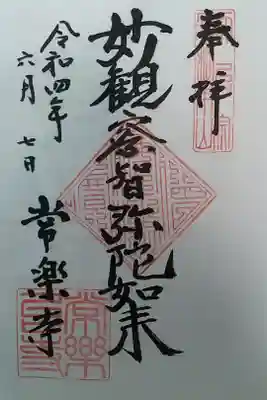 奉拝
妙観察智弥陀如来
常楽寺
令和四年
六月 七日